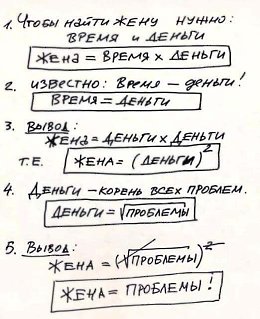 1. Чтобы найти жену нужно:
время и деньги
жена = время x деньги
2. известно: время – деньги!
время = деньги
3. вывод:
жена = деньги x деньги
т.е. жена = (деньги)²
4. Деньги – корень всех проблем.
деньги = √проблемы
5. Вывод:
жена = (√проблемы)²
жена = проблемы!